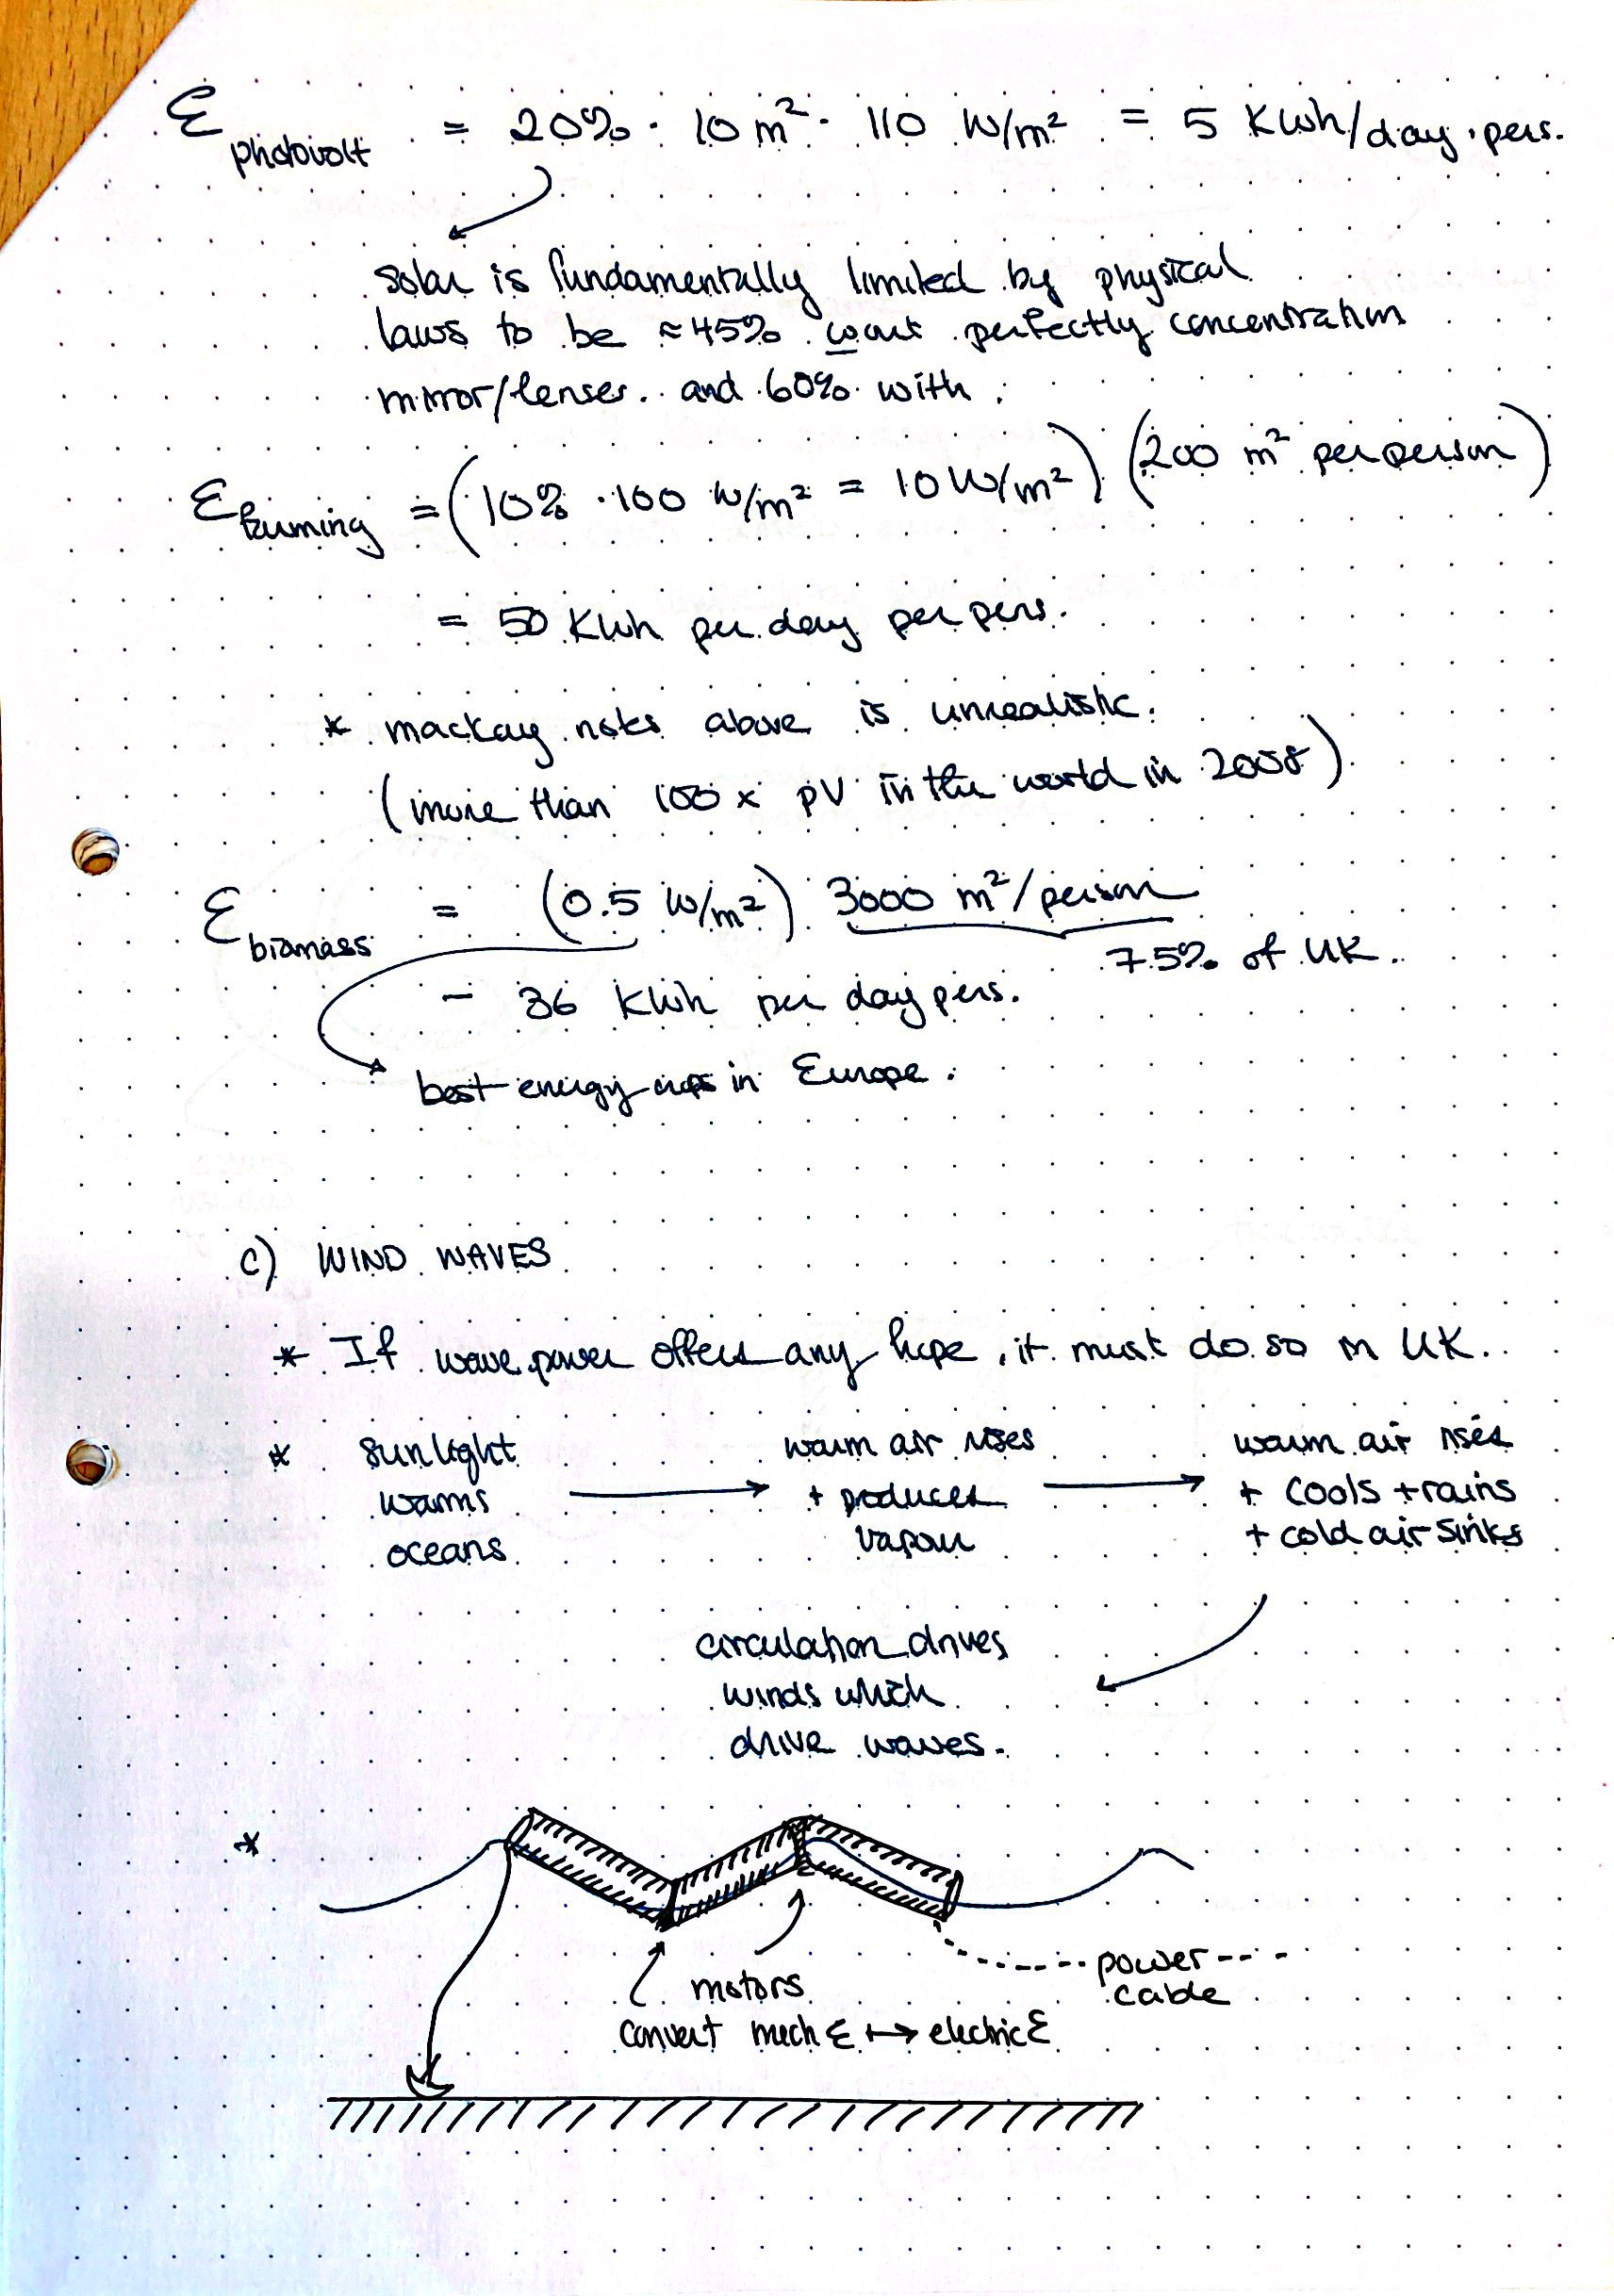 ℰ photovolt = 20% · 10 m² · 110 W/m² = 5 KWh/day·pers.
solar is fundamentally limited by physical
laws to be ≈ 45% wout perfectly concentration
mirror/lenses. and 60% with.
ℰ farming = (10% · 100 W/m² = 10 W/m²) (200 m² per person)
= 50 KWh per day per pers.
* mackay notes above is unrealistic.
(more than 100x PV in the world in 2008)
ℰ biomass = (0.5 W/m²) 3000 m²/person
75% of UK.
= 36 KWh per day pers.
best energy crops in Europe.
c) WIND WAVES
* If wave power offers any hope, it must do so in UK.
* sunlight warms oceans → warm air rises + produces vapour → warm air rises + cools + rains + cold air sinks
circulation drives
winds which
drive waves.
*
power
cable
motors
convert mech ℰ ↦ electric ℰ